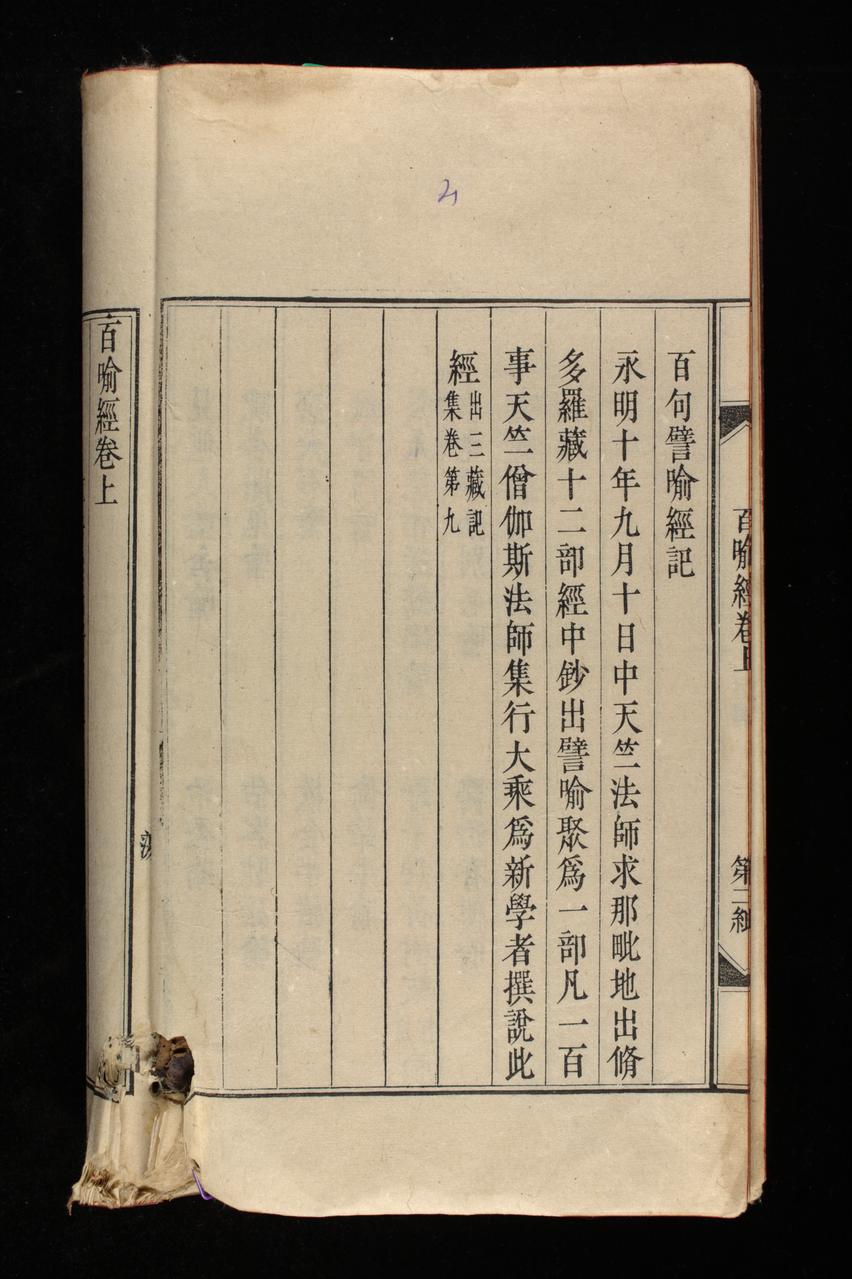 百句譬喻經記
永明十年九月十日中天竺法師求那毗地出脩
多羅藏十二部經中鈔出譬喻聚爲一部凡一百
事天竺僧伽斯法師集行大乘爲新學者撰說此
經出三藏記
集卷第九
百喻經卷上
第二
百喻經卷上